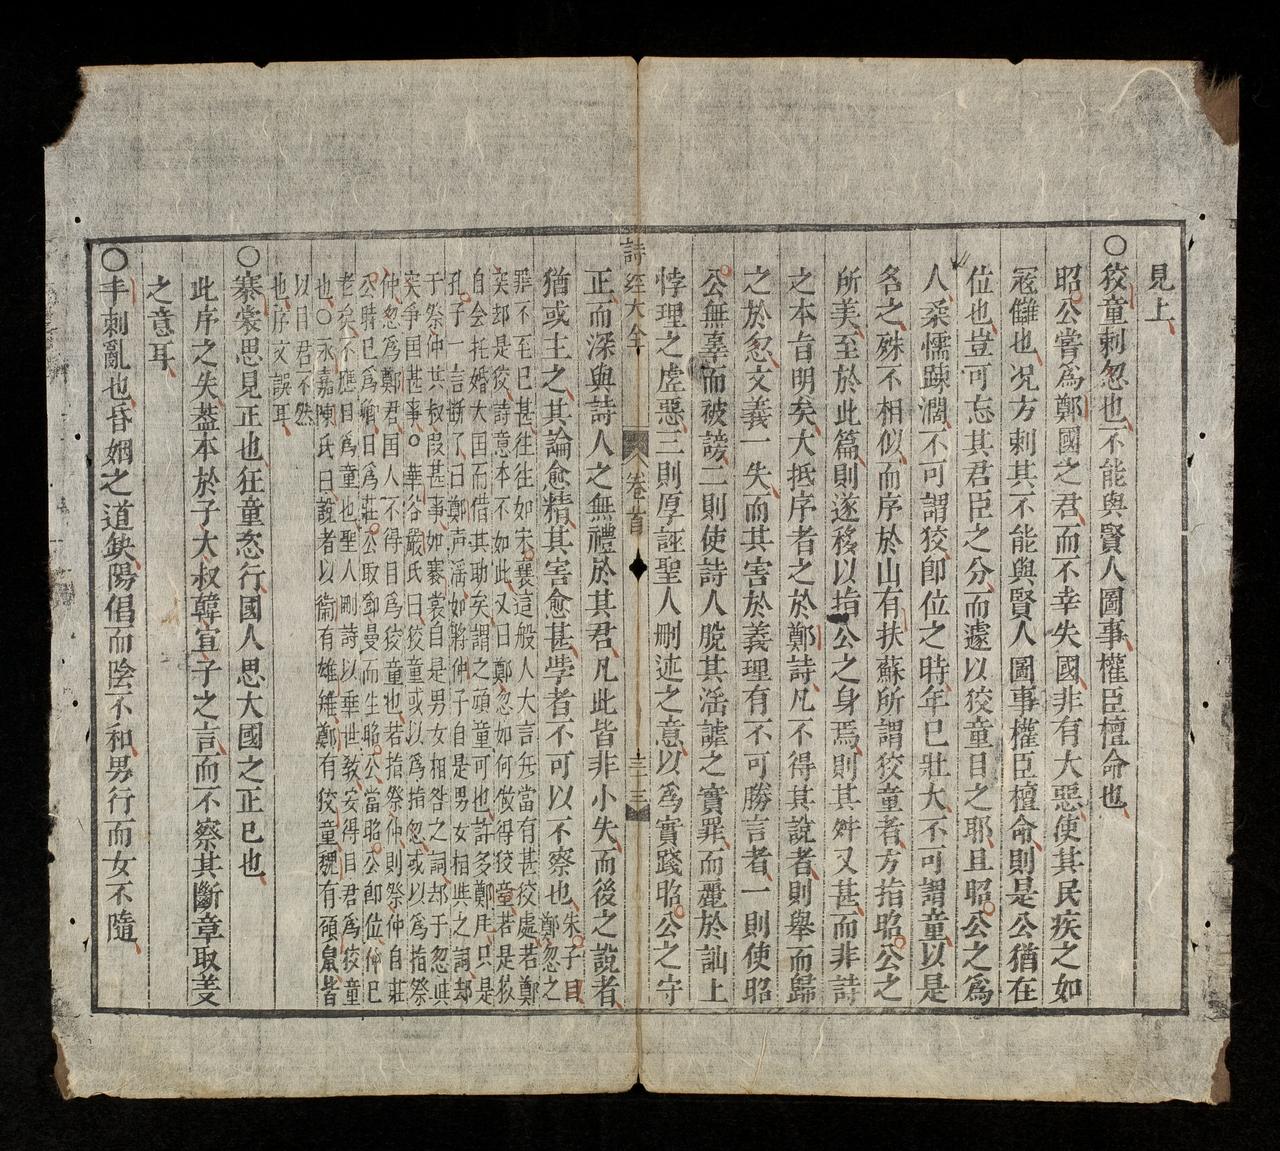 見上
○狡童刺忽也不能與賢人圖事權臣檀命也
昭公嘗爲鄭國之君而不幸失國非有大惡使其民疾之如
冦讎也况方刺其不能與賢人圖事權臣檀命則是公猶在
位也豈可忘其君臣之分而遽以狡童目之耶且昭公之爲
人柔懦踈濶不可謂狡即位之時年已壯大不可謂童以是
名之殊不相似而序於山有扶蘇所謂狡童者方指昭公之
所美至於此篇則遂移以指公之身焉則其舛又甚而非詩
之本旨明矣大抵序者之於鄭詩凡不得其說者則舉而歸
之於忽文義一失而其害於義理有不可勝言者一則使昭
公無辜而被謗二則使詩人脫其淫謔之實罪而麗於訕上
悖理之虛惡三則厚誣聖人刪述之意以爲實賤昭公之守
詩經大全 卷首
正而深與詩人之無禮於其君凡此皆非小失而後之說者
猶或主之其論愈精其害愈甚學者不可以不察也朱子曰
鄭忽之
罪不至已甚往往如宋襄這般人大言無當有甚狡處若鄭
突却是狡詩意本不如此又曰鄭忽如何做得狡童若是狡
自會托婚大国而借其助矣謂之頑童可也許多鄭風只是
孔子一言断了曰鄭声淫如將仲子自是男女相與之詞却
于祭仲共叔段甚事如褰裳自是男女相咎之詞却于忽與
突争国甚事○華谷嚴氏曰狡童或以爲指忽或以爲指祭
仲忽爲鄭君国人不得目爲狡童也若指祭仲則祭仲自莊
公時已爲卿曰爲莊公取鄧曼而生昭公當昭公即位仲已
老矣不應目爲童也聖人刪詩以垂世教安得目君爲狡童
也○永嘉陳氏曰說者以衛有雄雉鄭有狡童魏有碩鼠皆
以目君不然
也序文誤耳
○褰裳思見正也狂童恣行國人思大國之正已也
此序之失葢本於子大叔韓宣子之言而不察其斷章取義
之意耳
○丰刺亂也昏姻之道缺陽倡而陰不和男行而女不隨